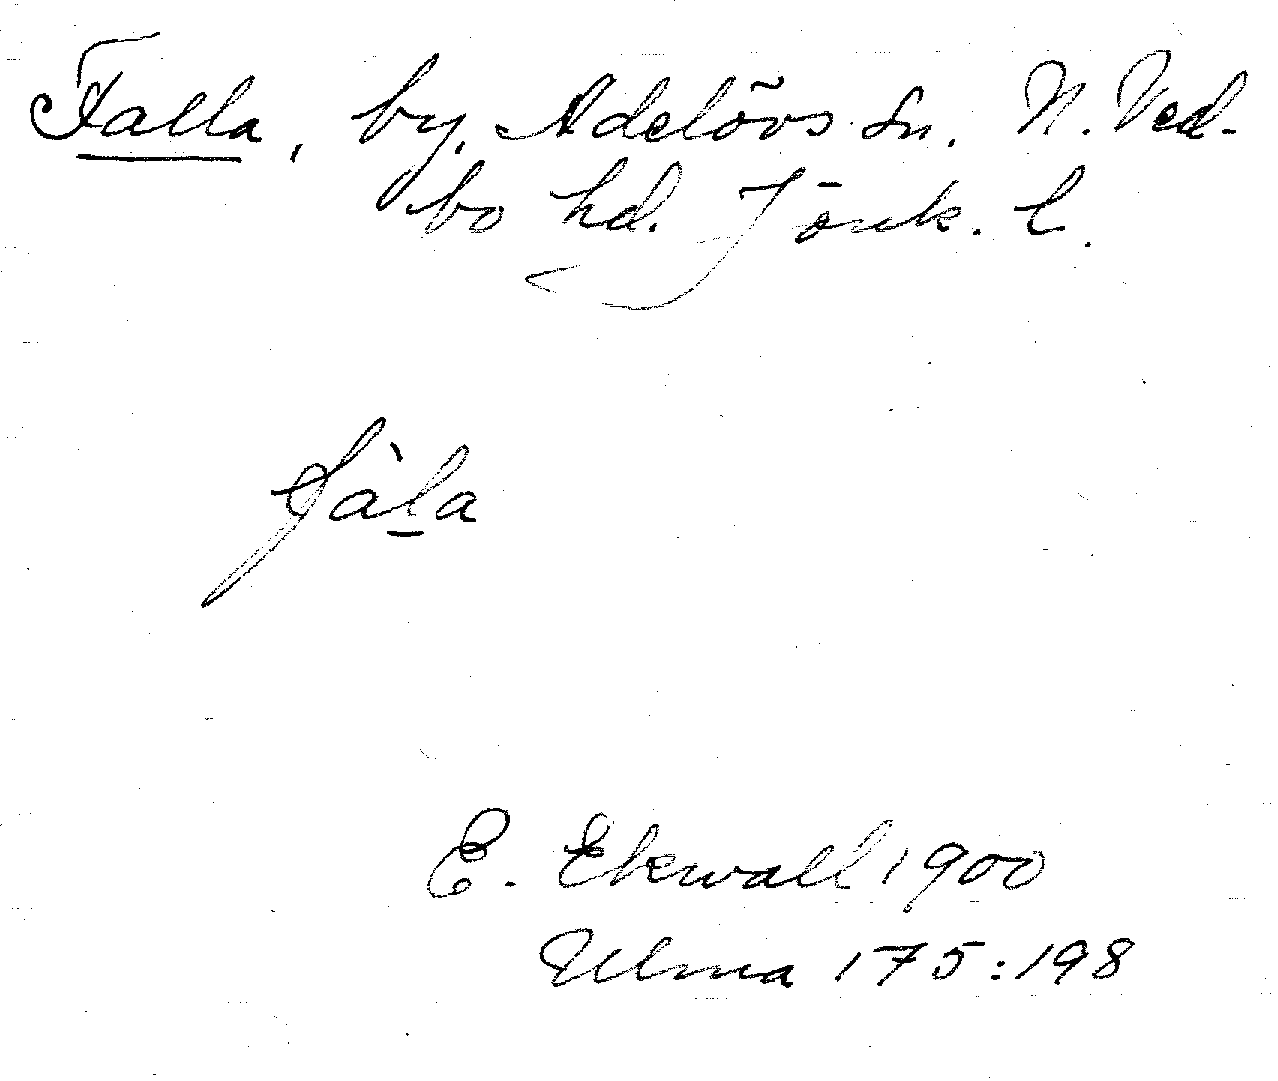 Falla, by, Adelövs sn. N. Ved-
bo hd. Jönk. l.
fàl̲a
E. Ekwall 1900
Ulma 175:198